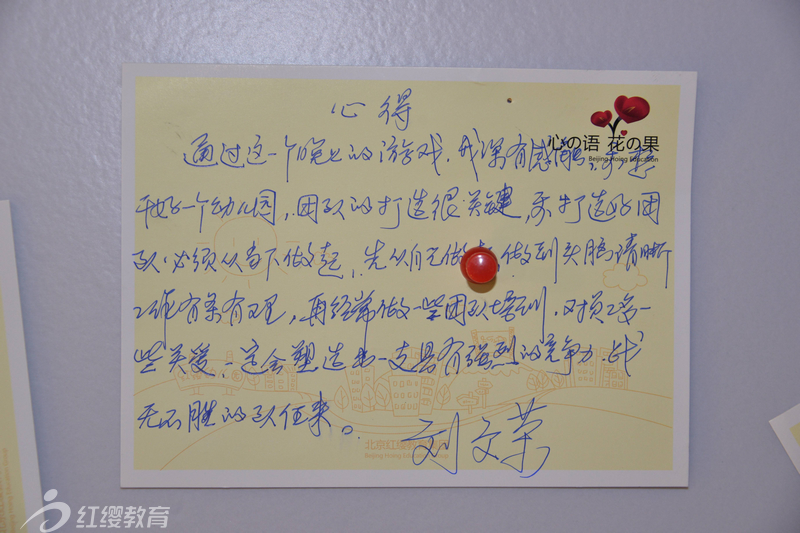 心得
心の语 花の果
Beijing Hoing Education
通过这一个晚上的游戏，我深有感触，要想
干好一个幼儿园，团队的打造很关键，要打造好团
队必须从当下做起，先从自己做 做到头脑清晰
工作有条有理，再经常做一些团队培训，对员工多一
些关爱，这会塑造出一支具有强烈的竞争力，战
无不胜的队伍来。
刘文荣
北京红缨教育
Beijing Hoing Education
红缨教育